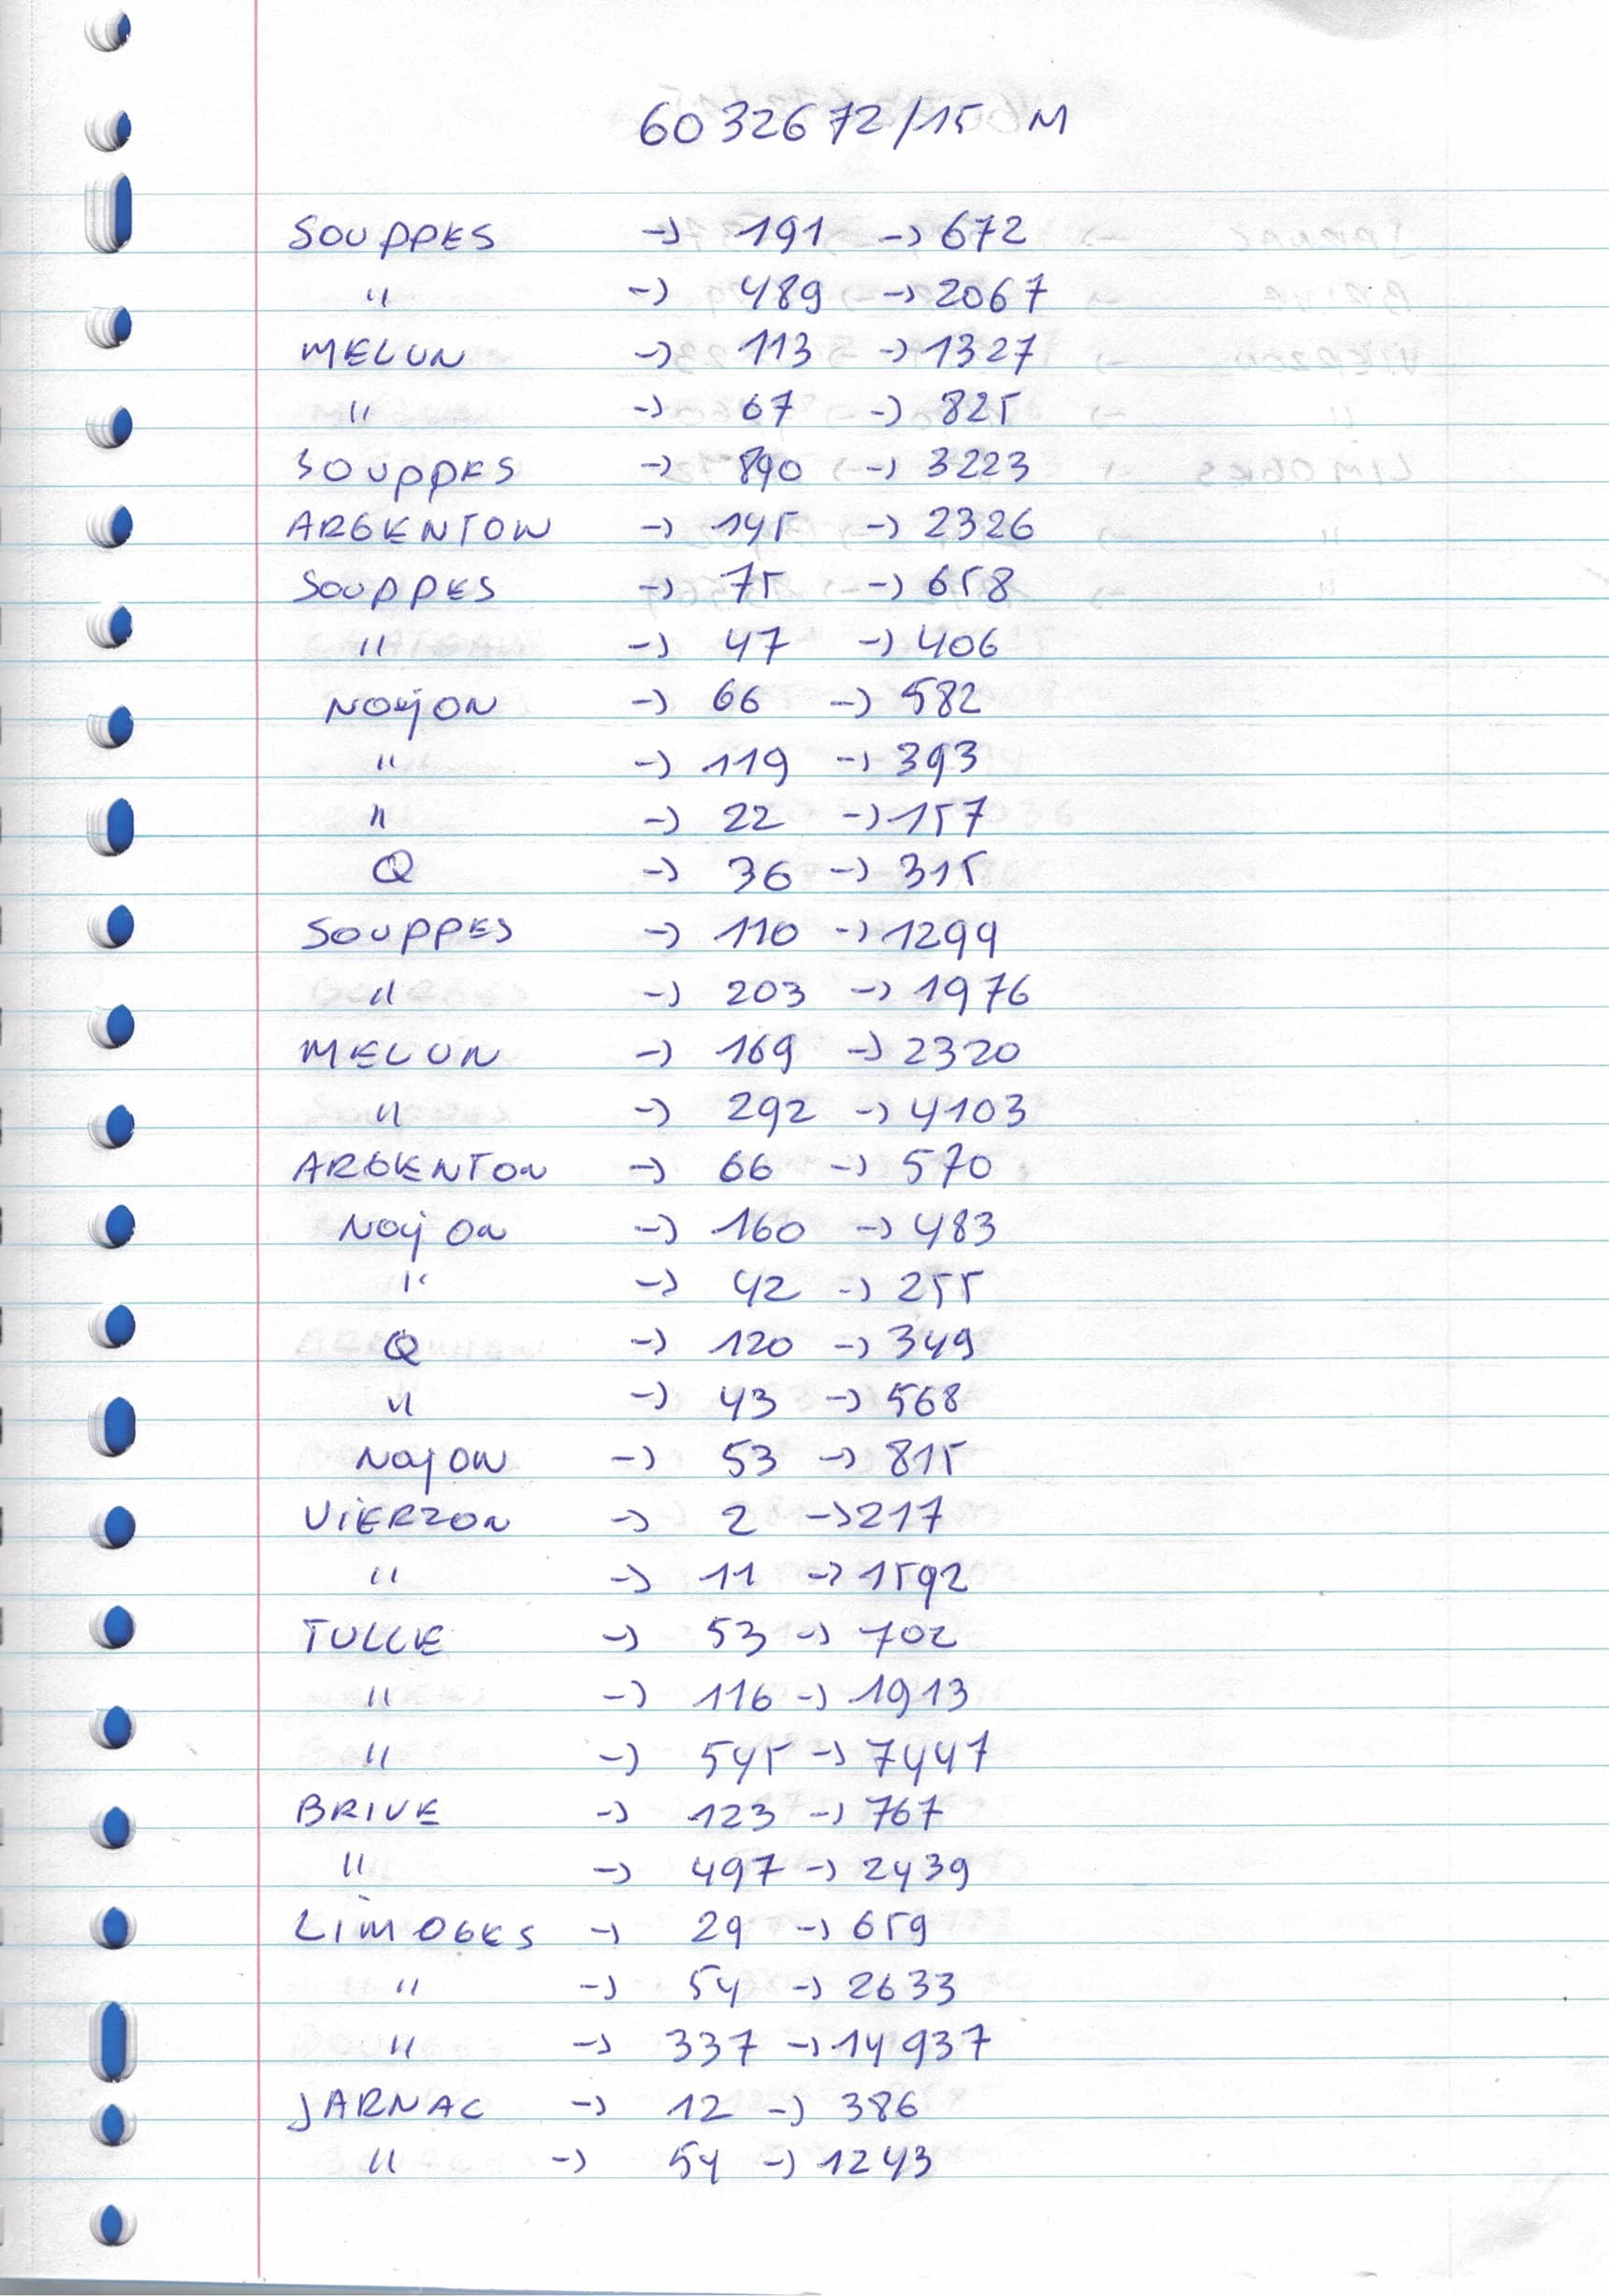 6032672/15 M
SOUPPES -> 191 -> 672
" -> 489 -> 2067
MELUN -> 113 -> 1327
" -> 67 -> 825
SOUPPES -> 890 -> 3223
ARGENTON -> 145 -> 2326
SOUPPES -> 75 -> 658
" -> 47 -> 406
NOYON -> 66 -> 582
" -> 119 -> 393
" -> 22 -> 157
Q -> 36 -> 315
SOUPPES -> 110 -> 1299
" -> 203 -> 1976
MELUN -> 169 -> 2320
" -> 292 -> 4103
ARGENTON -> 66 -> 570
NOYON -> 160 -> 483
" -> 42 -> 255
Q -> 120 -> 349
" -> 43 -> 568
NOYON -> 53 -> 815
VIERZON -> 2 -> 217
" -> 11 -> 1592
TULLE -> 53 -> 702
" -> 116 -> 1913
" -> 545 -> 7447
BRIVE -> 123 -> 767
" -> 497 -> 2439
LIMOGES -> 29 -> 659
" -> 54 -> 2633
" -> 337 -> 14937
JARNAC -> 12 -> 386
" -> 54 -> 1243